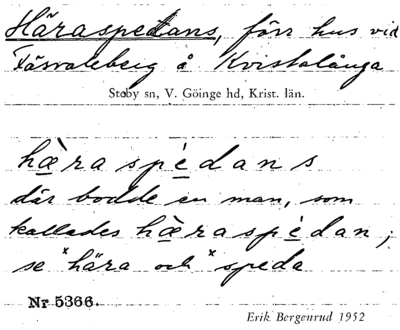 Häraspedans, förr hus vid
Fäsvaleberg å Kvistalånga
Stoby sn, V. Göinge hd, Krist. län.
hæ̀raspèdans
där bodde en man, som
kallades hæ̀raspèdan;
se *hära och *speda
Nr 5366.
Erik Bergenrud 1952